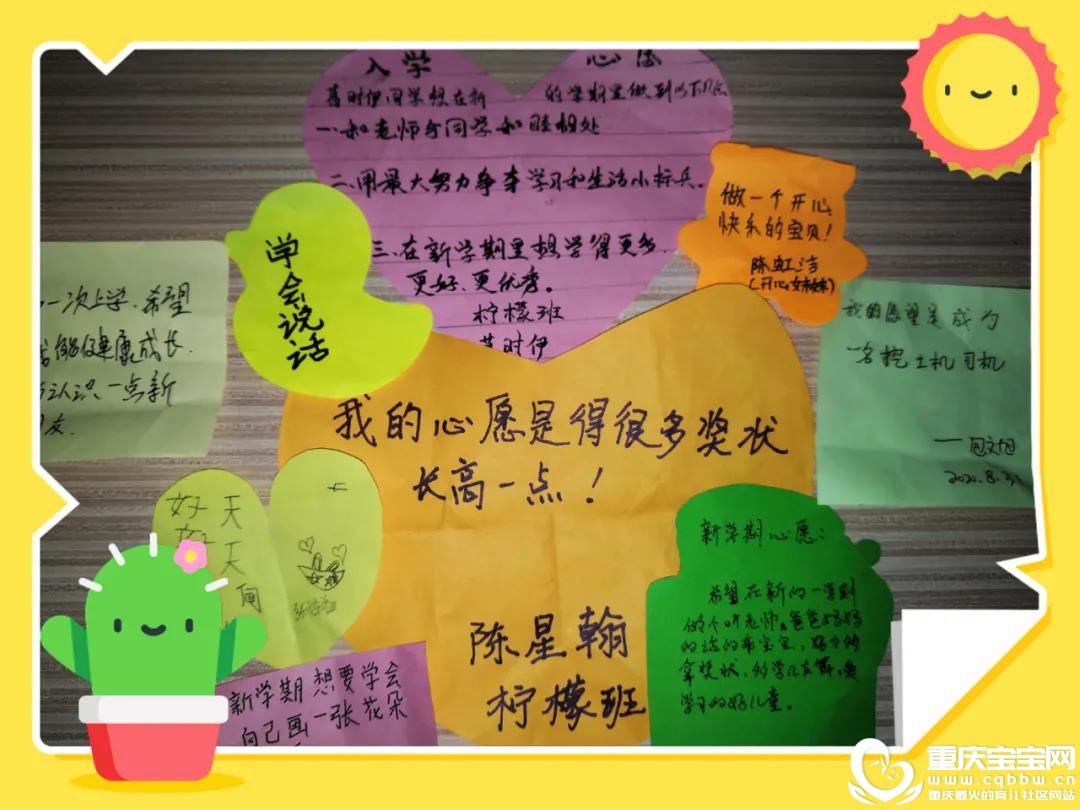 入学 心愿
时伊同学想在新 的学期里做到以下几点
一、和老师与同学和睦相处
二、用最大努力争夺学习和生活小标兵。
三、在新学期里想学得更多、
更好、更优秀。
柠檬班
时伊
学会说话
做一个开心
快乐的宝贝！
陈虹洁
一次上学，希望
健康成长
认识一点新
友.
我的愿望是成为
一名挖土机司机
2020.8.31
我的心愿是得很多奖状
长高一点！
陈星翰
柠檬班
好 天
天
新学期心愿：
希望在新的一学期
做个听老师、爸爸妈妈
的话的乖宝宝，努力
拿奖状，
学习的好儿童。
新学期想要学会
自己画一张花朵
重庆宝宝网
www.cqbbw.cn
重庆最火的育儿社区网站